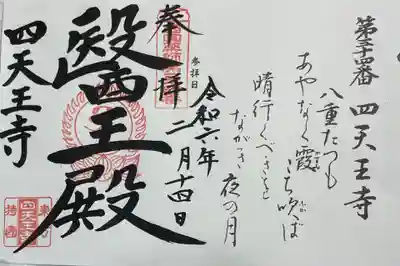 第三十四番 四天王寺
八重たつも
あやなく霞 こち吹ば
晴行くべきを
ながき夜の月
参拝日
令和六年
二月十四日
奉拝
醫王殿
四天王寺
四天王寺